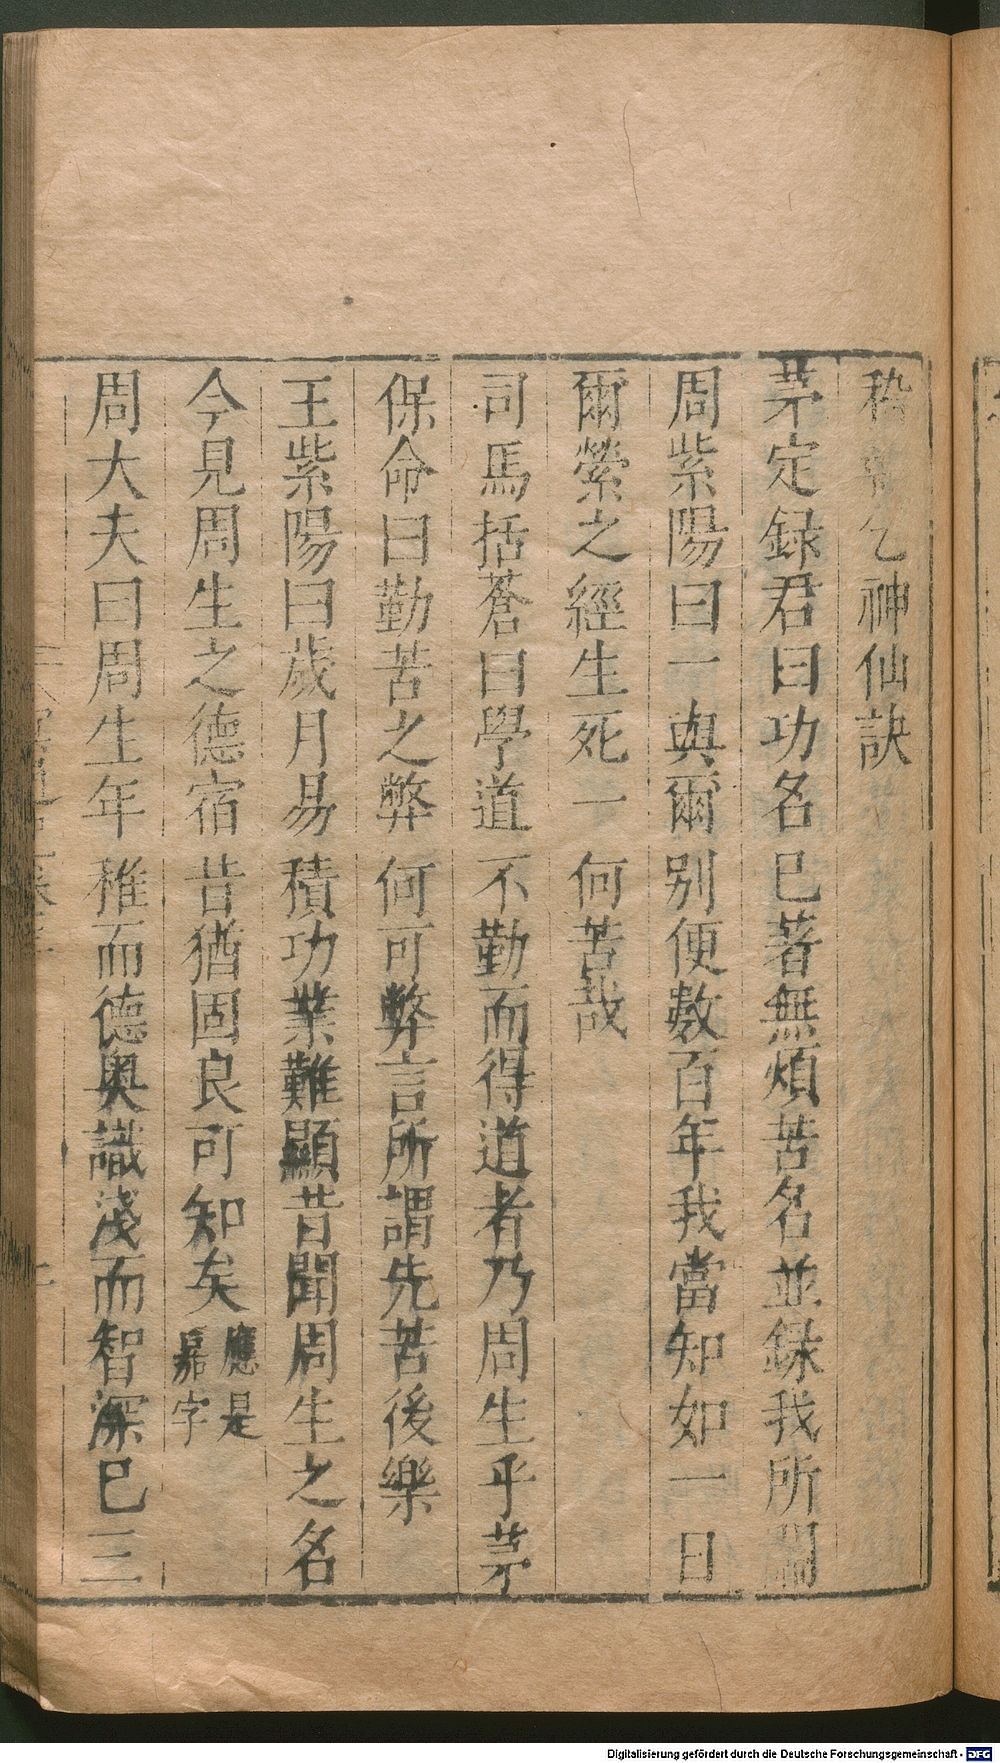 乞神仙訣
茅定録君曰功名已著無煩苦名並録我所聞
周紫陽曰一與爾別便數百年我當知如一日
爾縈之經生死一何苦哉
司馬括蒼曰學道不勤而得道者乃周生乎茅
保命曰勤苦之弊何可弊言所謂先苦後樂
王紫陽曰歲月易積功業難顯昔聞周生之名
今見周生之德宿昔猶固良可知矣應是嘉字
周大夫曰周生年稚而德奥識淺而智深已三
Digitalisierung gefördert durch die Deutsche Forschungsgemeinschaft - DFG